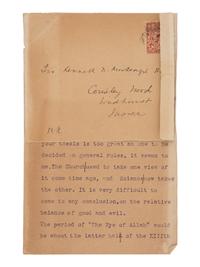 Kenneth
Cousley Wood
Wadhurst
Sussex
your thesis is too great an one to be
decided on general rules, it seems to
me. The Church used to take one view of
it some time ago, and Science now takes
the other. It is very difficult to
come to any conclusion, on the relative
balance of good and evil.
The period of "The Eye of Allah" would
be about the latter half of the XIIIth